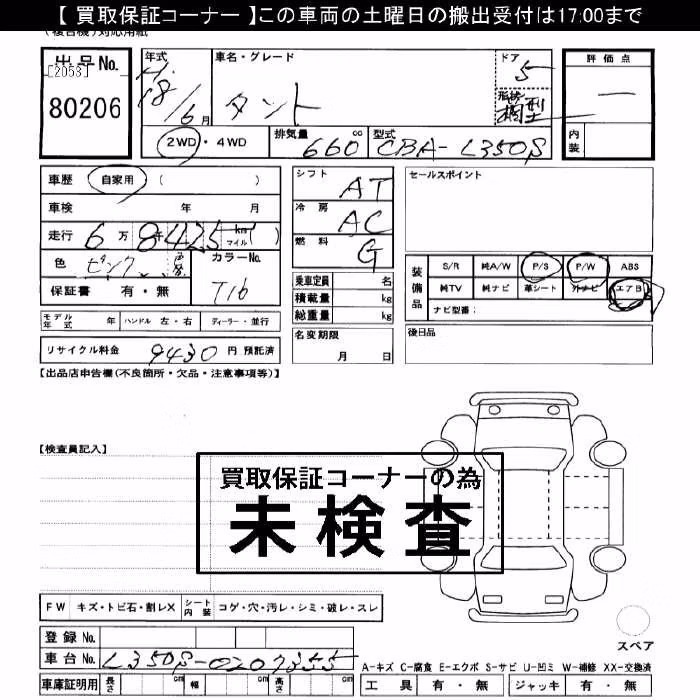 【 買取保証コーナー 】この車両の土曜日の搬出受付は17:00まで
(複合機)対応用紙
出品No. [2053]
80206
年式 H. 18/6月
車名・グレード タント
ドア 5
形状 箱型
2WD・4WD
排気量 660 cc
型式 CBA-L350S
評価点 —
内装
車歴 自家用 ( )
車検 年 月
走行 6万8千425 km マイル( )
色 ピンク
カラーNo. T16
保証書 有・無
シフト AT
冷房 AC
燃料 G
乗車定員 名
積載量 kg
総重量 kg
名変期限 月 日
セールスポイント
装備品
S/R 純A/W P/S P/W ABS
純TV 純ナビ 革シート 外ナビ エアB
ナビ型番:
後日品
モデル年式 年 ハンドル 左・右 ディーラー・並行
リサイクル料金 9430 円 預託済
【出品店申告欄(不良箇所・欠品・注意事項等)】
【検査員記入】
買取保証コーナーの為
未検査
FW キズ・トビ石・割レX シート内装 コゲ・穴・汚レ・シミ・破レ・スレ
登録No.
車台No. L350S-0207355
車庫証明用 長さ cm 幅 cm 高さ cm
スペア
A-キズ C-腐食 E-エクボ S-サビ U-凹ミ W-補修 XX-交換済
工具 有・無 ジャッキ 有・無